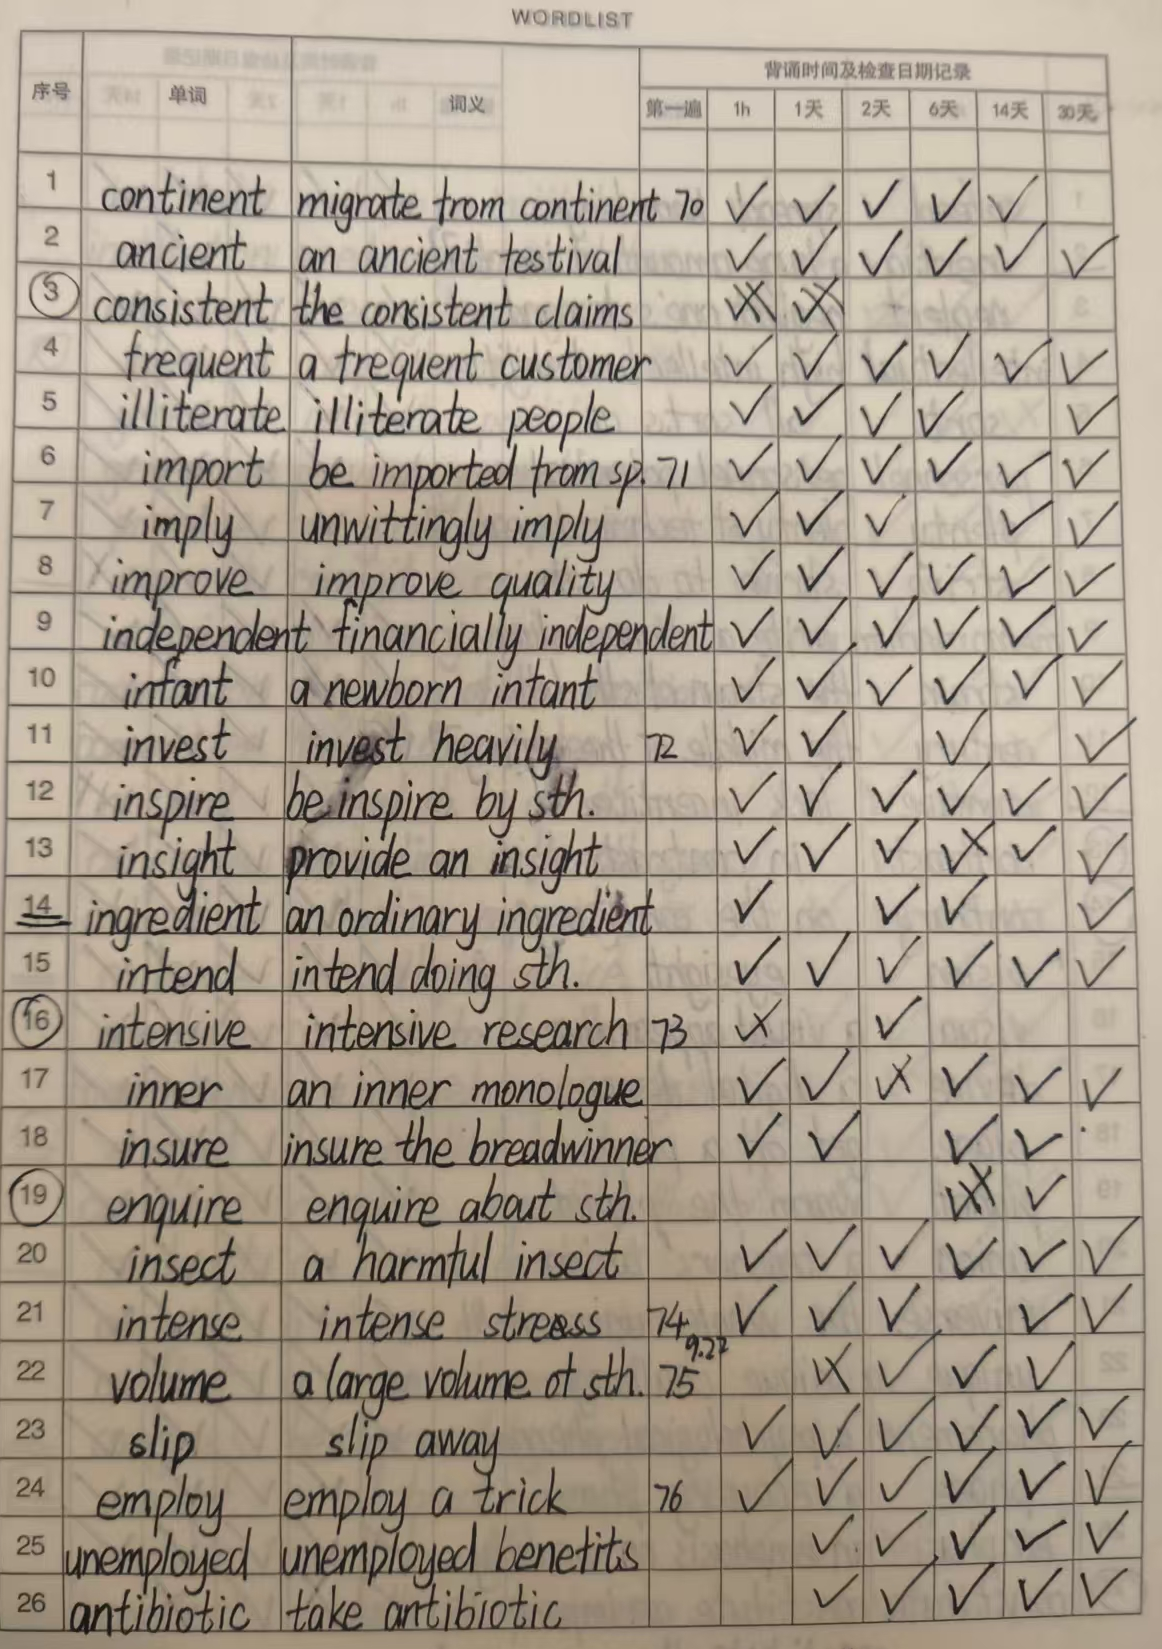 WORDLIST
序号 单词 词义 背诵时间及检查日期记录
第一遍 1h 1天 2天 6天 14天 30天
1 continent migrate from continent 70 ✓ ✓ ✓ ✓ ✓
2 ancient an ancient festival ✓ ✓ ✓ ✓ ✓ ✓
3 consistent the consistent claims
4 frequent a frequent customer ✓ ✓ ✓ ✓ ✓ ✓
5 illiterate illiterate people ✓ ✓ ✓ ✓ ✓
6 import be imported from sp. 71 ✓ ✓ ✓ ✓ ✓ ✓
7 imply unwittingly imply ✓ ✓ ✓ ✓ ✓
8 improve improve quality ✓ ✓ ✓ ✓ ✓ ✓
9 independent financially independent ✓ ✓ ✓ ✓ ✓ ✓
10 infant a newborn infant ✓ ✓ ✓ ✓ ✓ ✓
11 invest invest heavily 72 ✓ ✓ ✓ ✓
12 inspire be inspire by sth. ✓ ✓ ✓ ✓ ✓ ✓
13 insight provide an insight ✓ ✓ ✓ ✓ ✓
14 ingredient an ordinary ingredient ✓ ✓ ✓ ✓
15 intend intend doing sth. ✓ ✓ ✓ ✓ ✓ ✓
16 intensive intensive research 73 ✓
17 inner an inner monologue ✓ ✓ ✓ ✓ ✓
18 insure insure the breadwinner ✓ ✓ ✓ ✓
19 enquire enquire about sth. ✓
20 insect a harmful insect ✓ ✓ ✓ ✓ ✓ ✓
21 intense intense stress 74 ✓ ✓ ✓ ✓ ✓
9.22
22 volume a large volume of sth. 75 ✓ ✓ ✓
23 slip slip away ✓ ✓ ✓ ✓ ✓ ✓
24 employ employ a trick 76 ✓ ✓ ✓ ✓ ✓ ✓
25 unemployed unemployed benefits ✓ ✓ ✓ ✓ ✓
26 antibiotic take antibiotic ✓ ✓ ✓ ✓ ✓